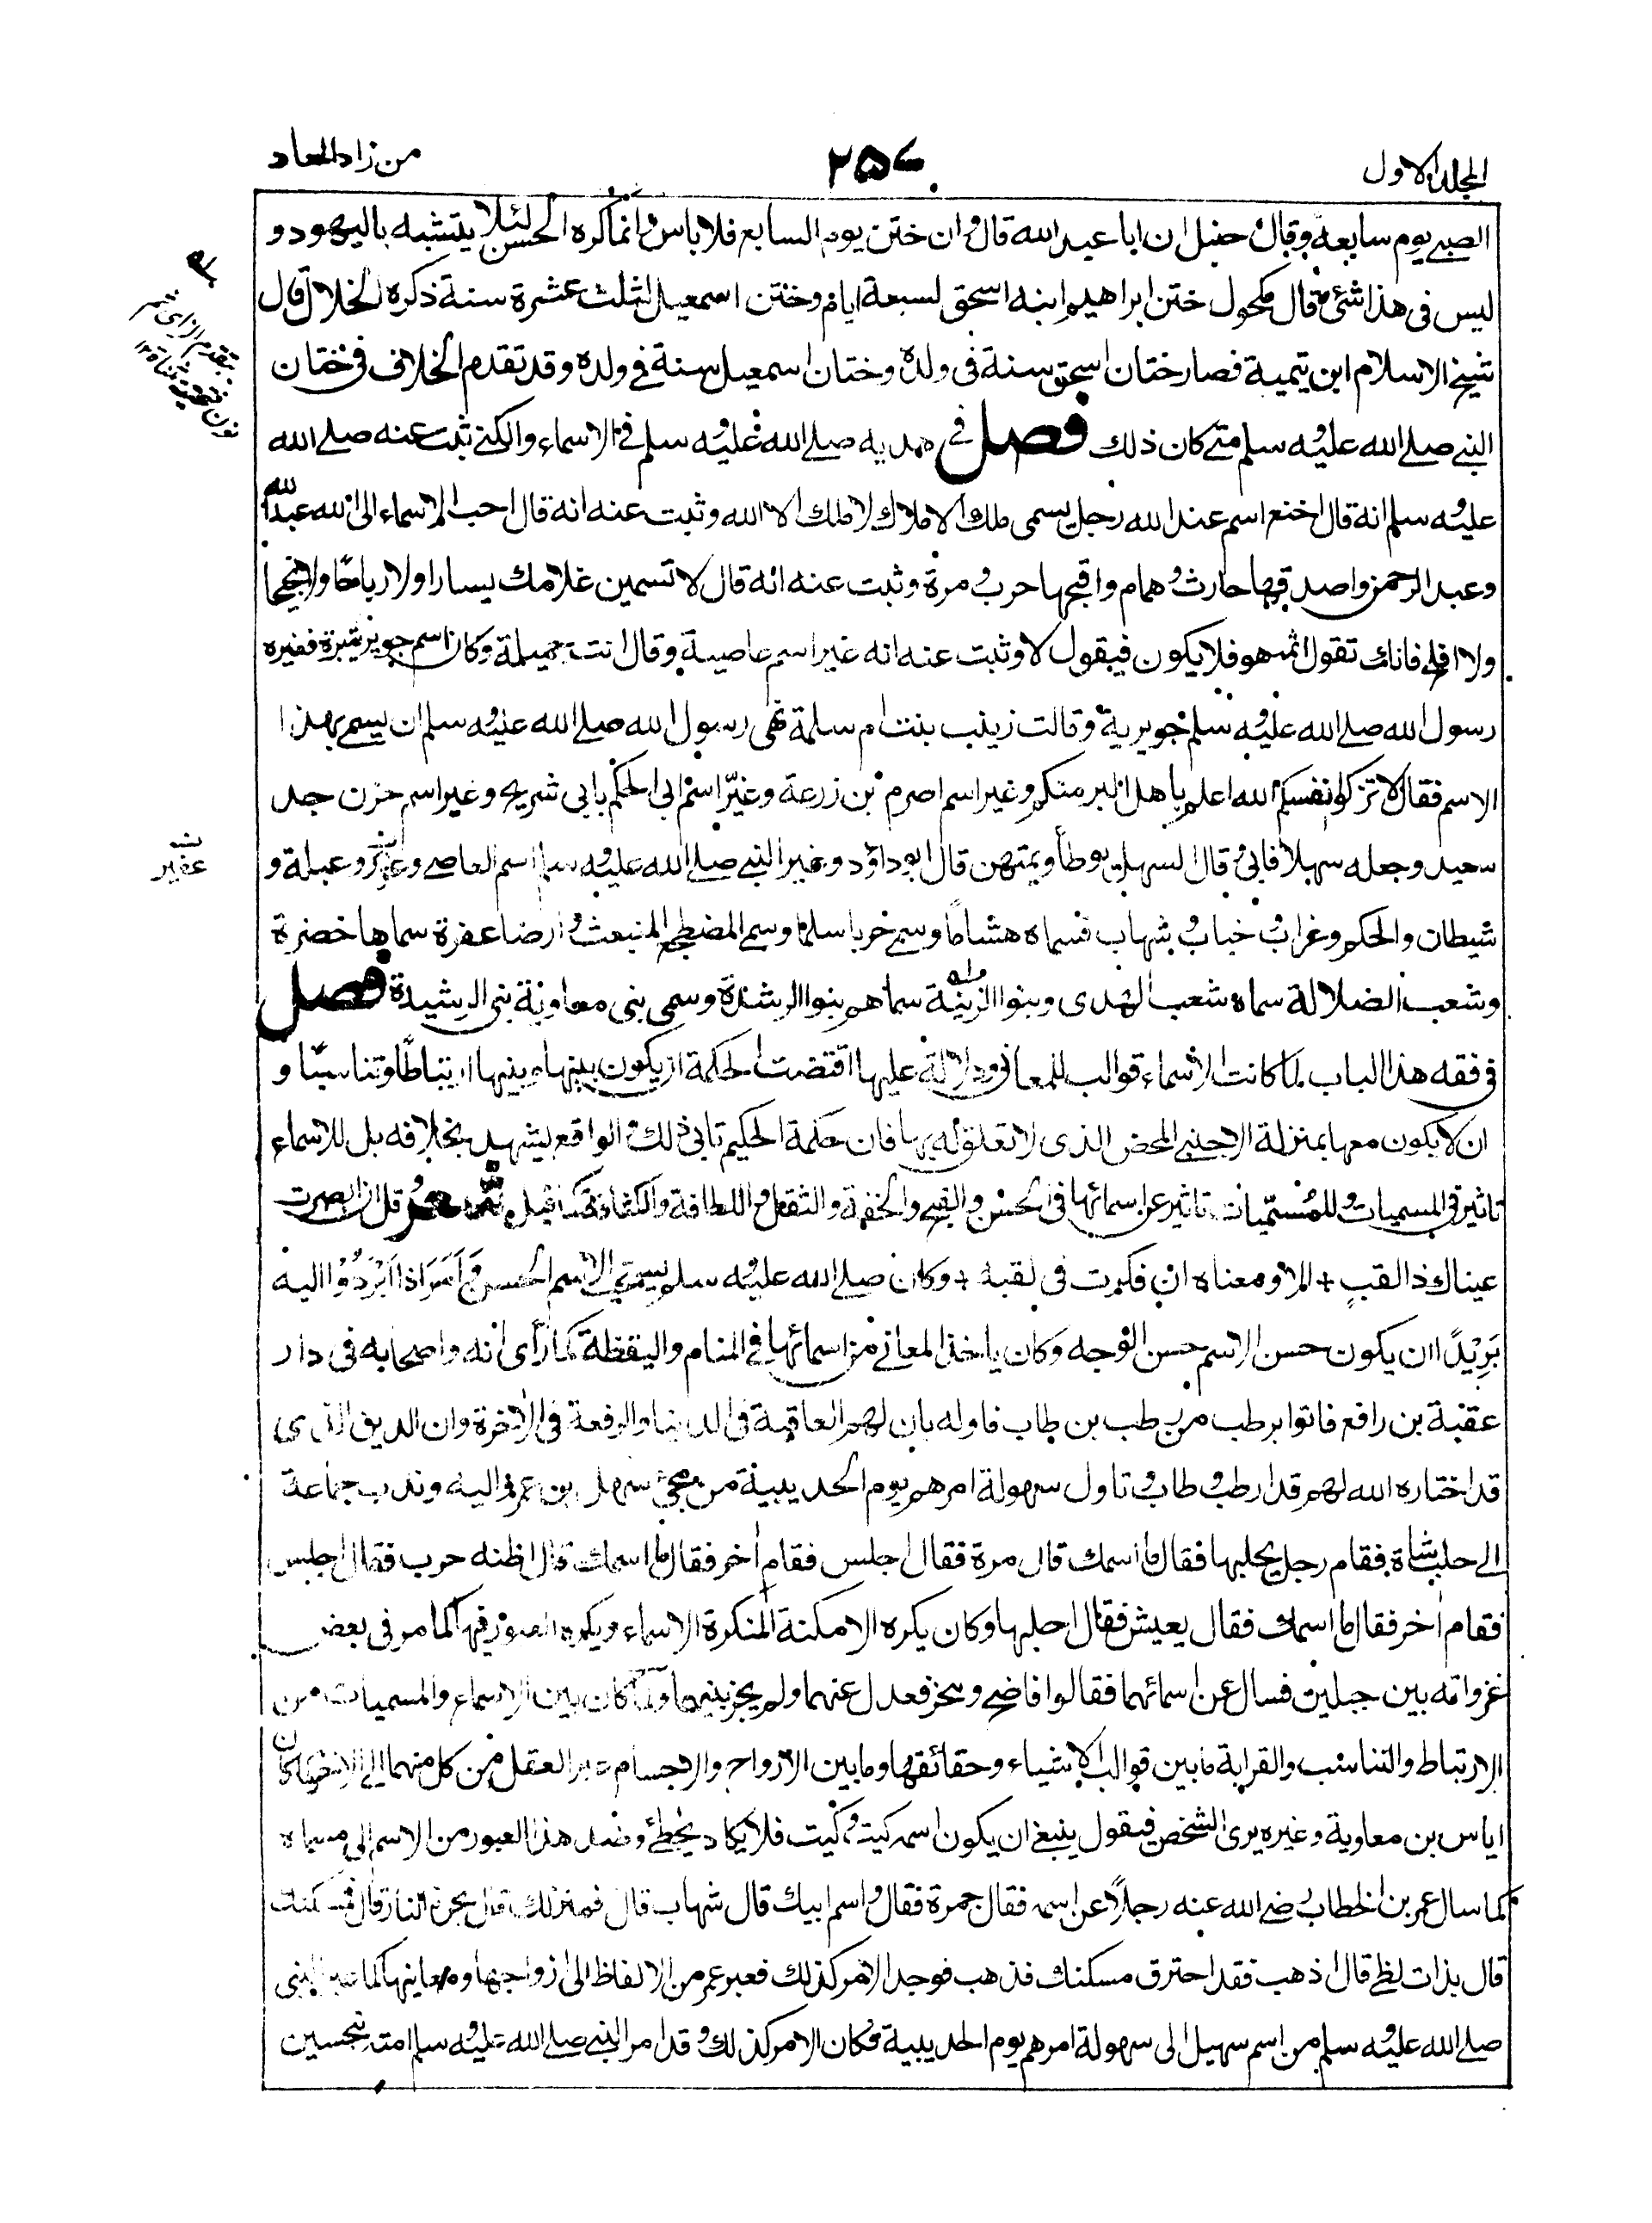 المجلد الاول
٢٥٧
من زاد المعاد
الصبى يوم سابعه وقال حنبل ان ابا عبد الله قال وان ختن يوم السابع فلا باس وانما كره الحسن لئلا يتشبه باليهود و
ليس فى هذا شئ قال مكحول ختن ابراهيم ابنه اسحق لسبعة ايام وختن اسمعيل لثلث عشرة سنة ذكره الخلال قال
شيخ الاسلام ابن تيمية فصار ختان اسحق سنة فى ولده وختان اسمعيل سنة فى ولده وقد تقدم الخلاف فى ختان
النبى صلى الله عليه وسلم متى كان ذلك فصل فى هديه صلى الله عليه وسلم فى الاسماء والكنى ثبت عنه صلى الله
عليه وسلم انه قال اخنع اسم عند الله رجل يسمى ملك الاملاك لا ملك الا الله وثبت عنه انه قال احب الاسماء الى الله عبد الله
وعبد الرحمن واصدقها حارث وهمام واقبحها حرب ومرة وثبت عنه انه قال لا تسمين غلامك يسارا ولا رباحا ولا نجيحا
ولا افلح فانك تقول اثم هو فلا يكون فيقول لا وثبت عنه انه غير اسم عاصية وقال انت جميلة وكان اسم جويرية برة فغيره
رسول الله صلى الله عليه وسلم جويرية وقالت زينب بنت ام سلمة نهى رسول الله صلى الله عليه وسلم ان يسمى بهذا
الاسم فقال لا تزكوا انفسكم الله اعلم باهل البر منكم وغير اسم اصرم بن زرعة وغيّر اسم ابى الحكم بابى شريح وغير اسم حزن جد
سعيد وجعله سهلا فابى وقال السهل يوطأ ويمتهن قال ابو داؤد وغير النبى صلى الله عليه وسلم اسم العاصى وعزيز وعبلة و
شيطان والحكم وغراب وخباب وشهاب فسماه هشاما وسمى حربا سلما وسمى المضطجع المنبعث وارضا عفرة سماها خضرة
وشعب الضلالة سماه شعب الهدى وبنوا الزنية سماهم بنوا الرشدة وسمى بنى معاوية بنى الرشيدة فصل
فى فقه هذا الباب لما كانت الاسماء قوالب للمعانى ودلالة عليها اقتضت الحكمة ان يكون بينها وبينها ارتباطًا وتناسبًا و
ان لا يكون معها بمنزلة الاجنبى المحض الذى لا تعلق له بها فان حكمة الحكيم تابى ذلك والواقع يشهد بخلافه بل للاسماء
تاثير فى المسميات وللمُسَمّيات تاثير عن اسمائها فى الحسن والقبح والخفة والثقل واللطافة والكثافة كما قيل شعر وقل ان ابصرت
عيناك ذا لقبٍ + الا ومعناه ان فكرت فى لقبه + وكان صلى الله عليه وسلم يستحب الاسم الحسن وَاَمَرَ اذا اَبْرَدُوْا اليه
بَرِيْدًا ان يكون حسن الاسم حسن الوجه وكان ياخذ المعانى من اسمائها فى المنام واليقظة كما رأى انه واصحابه فى دار
عقبة بن رافع فاتوا برطب من رطب بن طاب فاوله بان لهم العاقبة فى الدنيا والرفعة فى الاخرة وان الدين الذى
قد اختاره الله لهم قد ارطب وطاب وتاول سهولة امرهم يوم الحديبية من مجئ سهيل بن عمرو اليه وندب جماعة
الى حلب شاة فقام رجل يحلبها فقال ما اسمك قال مرة فقال اجلس فقام اخر فقال ما اسمك قال اظنه حرب فقال اجلس
فقام اخر فقال ما اسمك فقال يعيش فقال احلبها وكان يكره الامكنة المنكرة الاسماء ويكره العبور فيها كما مر فى بعض
غزواته بين جبلين فسال عن اسمائهما فقالوا فاضح ومخز فعدل عنهما ولم يجز بينهما ولما كان بين الاسماء والمسميات من
الارتباط والتناسب والقرابة ما بين قوالب الاشياء وحقائقها وما بين الارواح والاجسام عبر العقل من كل منهما الى الاخر كما كان
اياس بن معاوية وغيره يرى الشخص فيقول ينبغى ان يكون اسمه كيت وكيت فلا يكاد يخطئ وضد هذا العبور من الاسم الى مسماه
كما سال عمر بن الخطاب رضى الله عنه رجلًا عن اسمه فقال جمرة فقال واسم ابيك قال شهاب قال فمنزلك قال بحرة النار قال فمسكنك
قال بذات لظى قال اذهب فقد احترق مسكنك فذهب فوجد الامر كذلك فعبر عمر من الالفاظ الى ازواجها ومعانيها كما عبر النبى
صلى الله عليه وسلم من اسم سهيل الى سهولة امرهم يوم الحديبية فكان الامر كذلك وقد امر النبى صلى الله عليه وسلم امته بتحسين
عفير